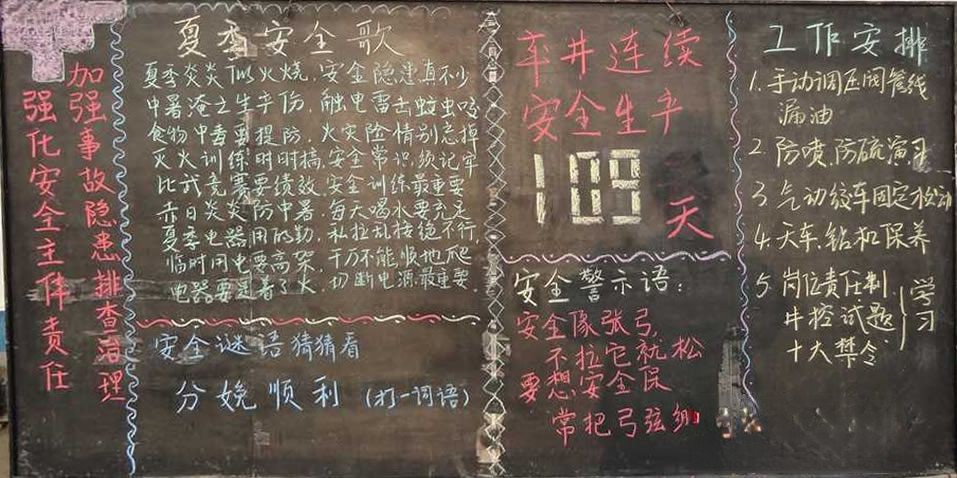 加强事故隐患排查治理
强化安全主体责任
夏季安全歌
夏季炎炎似火烧,安全隐患真不少
中暑淹亡生产伤,触电雷击蚊虫咬
食物中毒要提防,火灾险情别忘掉
灭火训练时时搞,安全常识须记牢
比武竞赛要绩效,安全训练最重要
赤日炎炎防中暑,每天喝水要充足
夏季电器用的勤,私拉乱接绝不行,
临时用电要高架,千万不能顺地爬
电器要是着了火,切断电源最重要.
安全谜语猜猜看
分娩顺利 (打一词语)
本井连续
安全生产
109
天
安全警示语:
安全像张弓,
不拉它就松
要想安全保
常把弓弦
工作安排
1. 手动调压阀管线
漏油
2. 防喷,防硫演习
3. 气动绞车固定松动
4. 天车,钻机保养
5. 岗位责任制
井控试题
十大禁令
学习